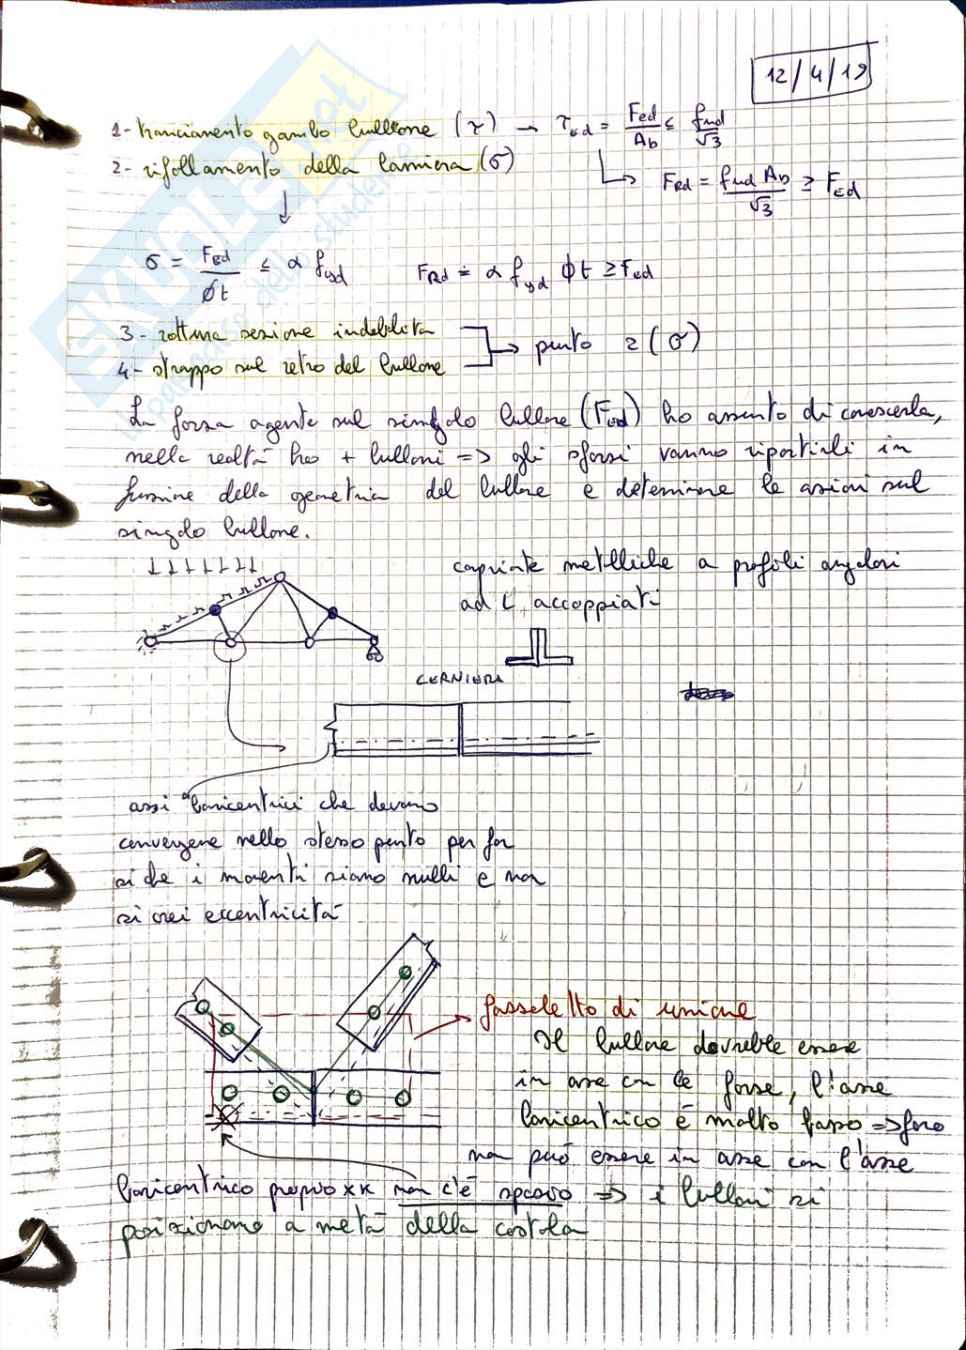 12/4/19
1- tranciamento gambo bullone (τ) → τEd = FEd/Ab ≤ fud/√3
2- rifollamento della lamiera (σ)
FRd = fud Ab/√3 ≥ FEd
σ = FEd/ϕt ≤ α fyd FRd = α fyd ϕ t ≥ FEd
3- rottura sezione indebolita
4- strappo sul retro del bullone
punto 2 (σ)
La forza agente sul singolo bullone (FEd) ho assunto di conoscerla,
nella realtà ho + bulloni => gli sforzi vanno ripartiti in
funzione della geometria del bullone e determinare le azioni sul
singolo bullone.
capriate metalliche a profili angolari
ad L accoppiati
CERNIERA
assi baricentrici che devono
convergere nello stesso punto per far
sì che i momenti siano nulli e non
si crei eccentricità
fazzoletto di unione
Il bullone dovrebbe essere
in asse con le forze, l'asse
baricentrico è molto basso => foro
non può essere in asse con l'asse
baricentrico proprio xk non c'è spazio => i bulloni si
posizionano a metà della costola
SKUOLA.net
il paradiso dello studente